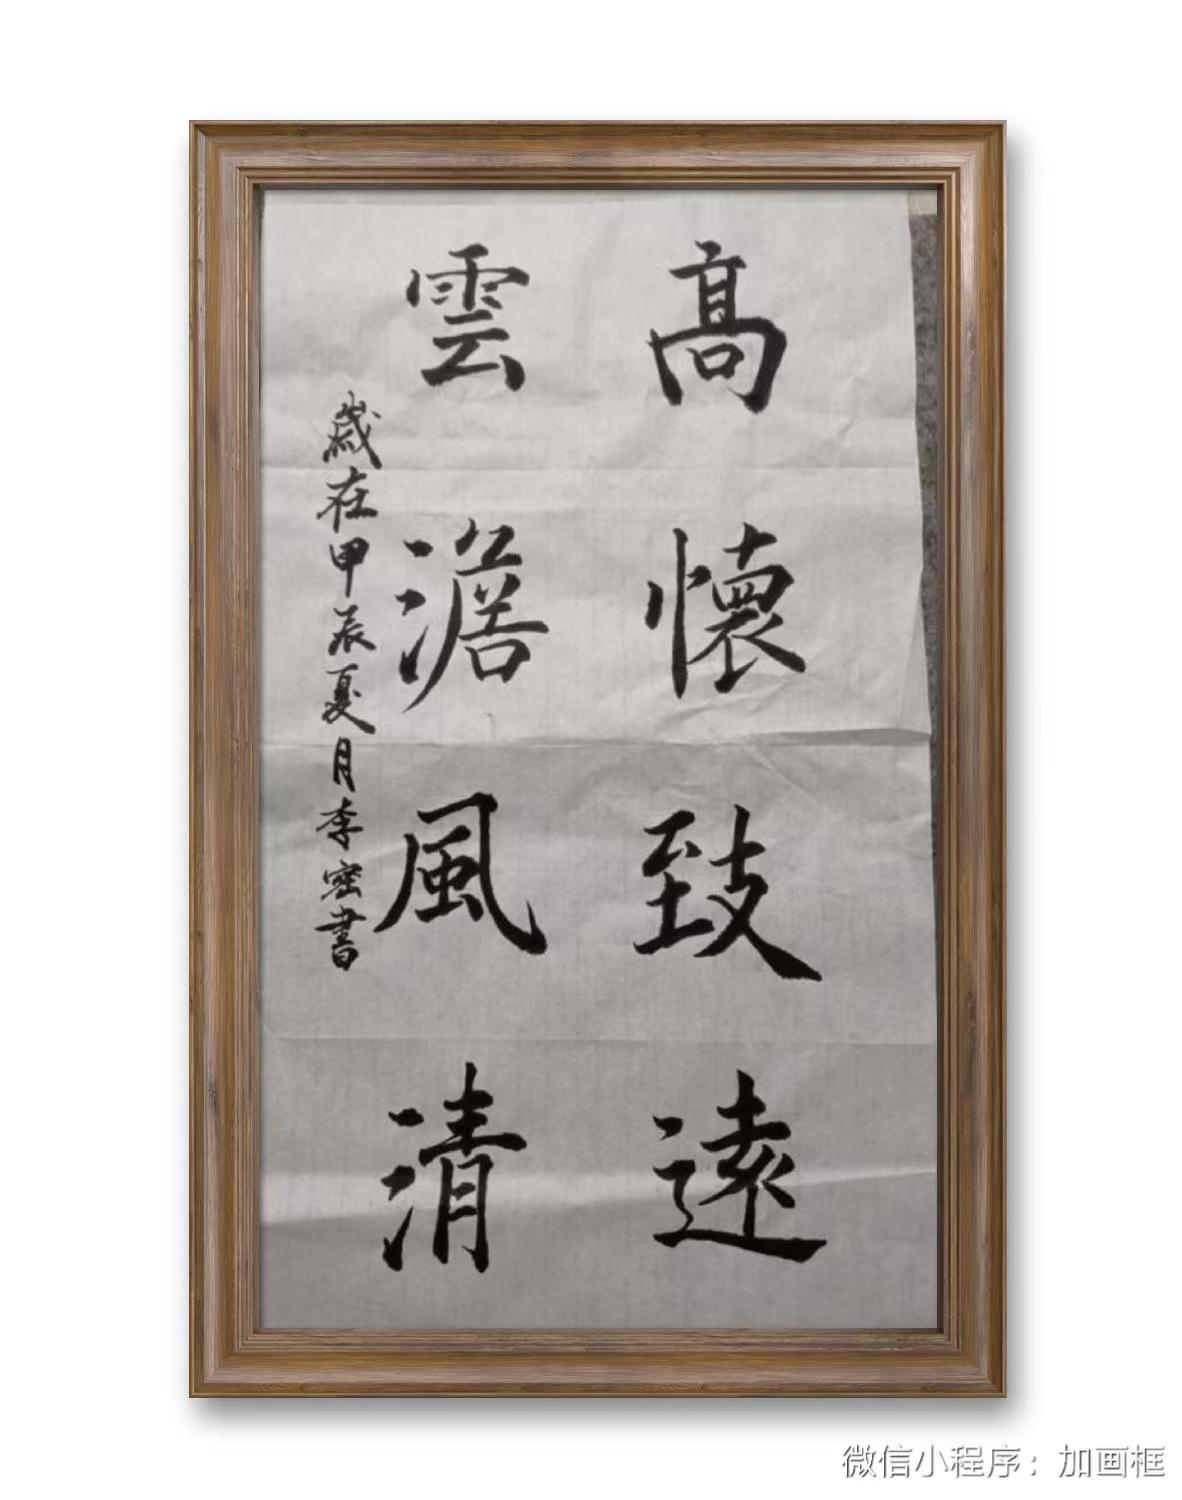 高懷致遠
雲澹風清
歲在甲辰夏月李密書
微信小程序：加画框